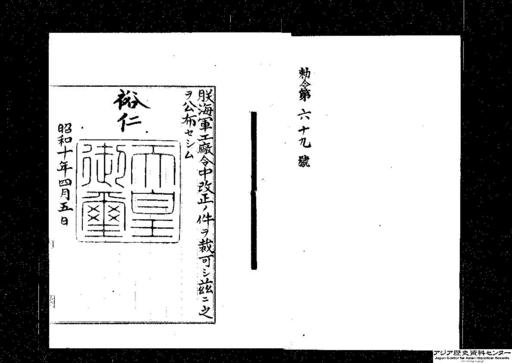 勅令第六十九號
朕海軍工廠令中改正ノ件ヲ裁可シ茲ニ之
ヲ公布セシム
裕仁
天皇
御璽
昭和十年四月五日
アジア歴史資料センター
Japan Center for Asian Historical Records